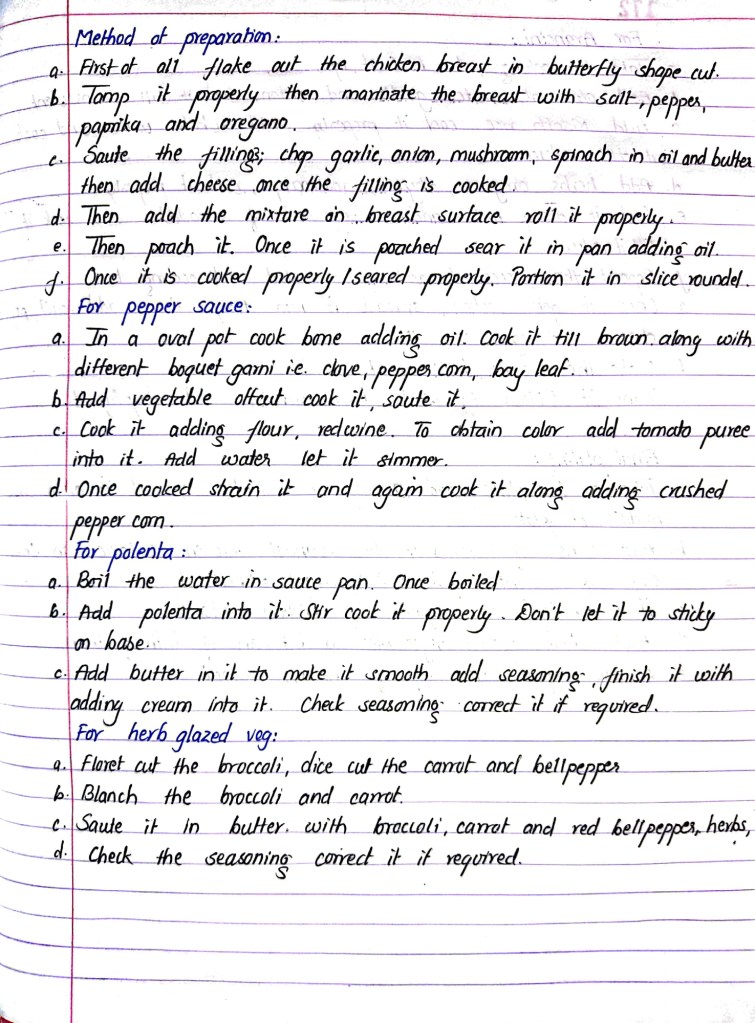 172
Method of preparation:
a. First of all flake out the chicken breast in butterfly shape cut.
b. Tamp it properly then marinate the breast with salt, pepper,
paprika, and oregano.
c. Saute the fillings; chop garlic, onion, mushroom, spinach in oil and butter
then add cheese once the filling is cooked.
d. Then add the mixture on breast surface roll it properly.
e. Then poach it. Once it is poached sear it in pan adding oil.
f. Once it is cooked properly / seared properly. Portion it in slice roundel.
For pepper sauce:
a. In a oval pot cook bone adding oil. Cook it till brown along with
different boquet garni i.e. clove, pepper corn, bay leaf.
b. Add vegetable offcut cook it, saute it.
c. Cook it adding flour, redwine. To obtain color add tomato puree
into it. Add water let it simmer.
d. Once cooked strain it and again cook it along adding crushed
pepper corn.
For polenta:
a. Boil the water in sauce pan. Once boiled
b. Add polenta into it. Stir cook it properly. Don't let it to sticky
on base.
c. Add butter in it to make it smooth add seasoning, finish it with
adding cream into it. Check seasoning correct it if required.
For herb glazed veg:
a. Floret cut the broccoli, dice cut the carrot and bellpepper
b. Blanch the broccoli and carrot.
c. Saute it in butter. with broccoli, carrot and red bellpepper, herbs,
d. Check the seasoning correct it if required.